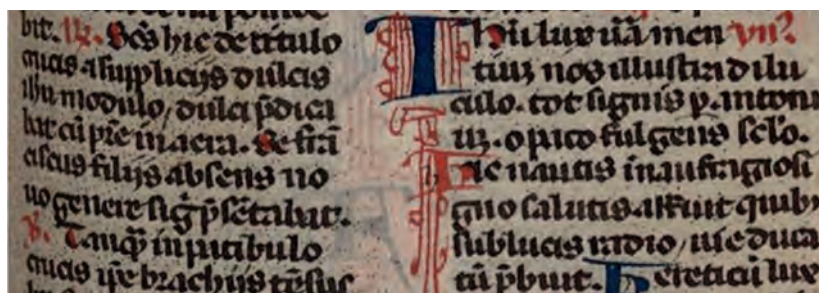 bit. R. Scs hic de titulo
crucis a supplicijs dulcis
ihu modulo, dulci pdica
bat cu pre in acra. Se fra
ciscus filijs absens no
uo genere sig psetabat.
V. Tanqp in patibulo
crucis ipe brachijs tesus
Ihu lux ua men vii?
tiuz nos illustra dilu
culo. tot signis p. antoni
uz. opito fulgens sclo.
ac nautis in aufragiosi
gno salutis affuit quib
sublucis radio, uie duca
tu pbuit. hereticu lux